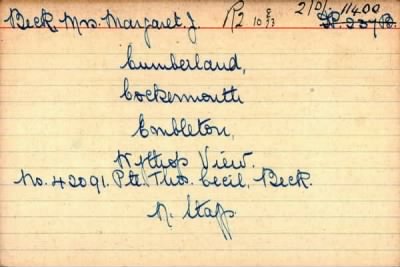 Beck Mrs. Margaret J. R2 10 8/73 2/D/11400
S.P. 237B.
Cumberland,
Cockermouth
Embleton,
Wythop View.
No. 42091. Pte. Thos. Cecil, Beck.
N. Staffs